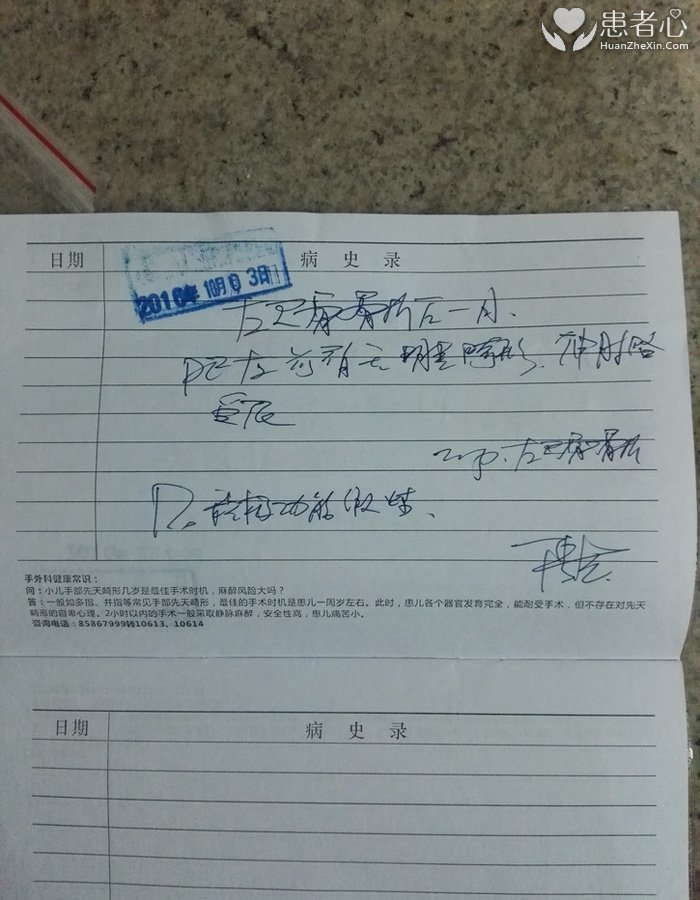 患者心
HuanZheXin.Com
日期 病史录
2016年10月03日
左尺骨骨折后一月.
PE 左前臂无明显畸形. 伸肘略
受限
imp: 左尺骨骨折
功能锻炼.
手外科健康常识：
问：小儿手部先天畸形几岁是最佳手术时机，麻醉风险大吗？
答：一般如多指、并指等常见手部先天畸形，最佳的手术时机是患儿一周岁左右。此时，患儿各个器官发育完全，能耐受手术，但不存在对先天
畸形的自卑心理。2小时以内的手术一般采取静脉麻醉，安全性高，患儿痛苦小。
咨询电话：85867999转10613、10614
日期 病史录